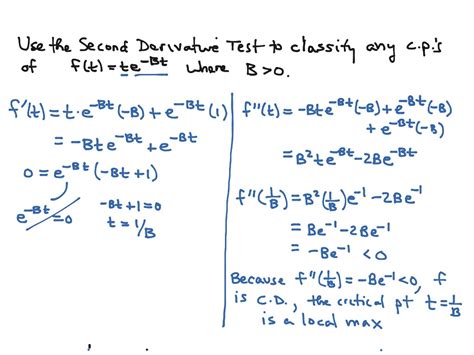 Use the Second Derivative Test to classify any c.p.'s
of f(t) = te^-Bt where B>0.
f'(t) = t·e^-Bt(-B) + e^-Bt(1)
= -Bte^-Bt + e^-Bt
0 = e^-Bt(-Bt+1)
e^-Bt=0
-Bt+1=0
t=1/B
f''(t) = -Bte^-Bt(-B) + e^-Bt(-B)
+ e^-Bt(-B)
= B²te^-Bt - 2Be^-Bt
f''(1/B) = B²(1/B)e^-1 - 2Be^-1
= Be^-1 - 2Be^-1
= -Be^-1 < 0
Because f''(1/B) = -Be^-1 < 0, f
is C.D., the critical pt t = 1/B
is a local max